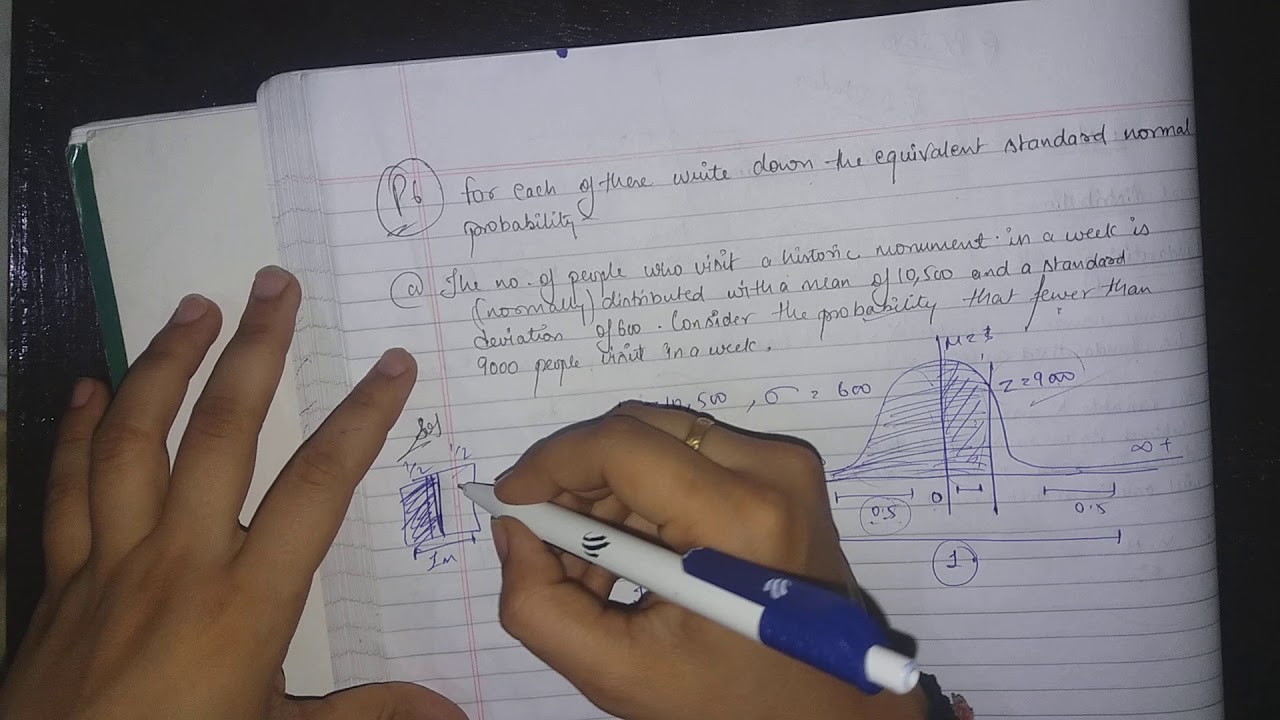 P6 for each of there write down the equivalent standard normal
probability
(a) The no. of people who visit a historic monument in a week is
(normally) distributed with a mean of 10,500 and a standard
deviation of 600. Consider the probability that fewer than
9000 people visit in a week.
Sol
10,500, σ = 600
Z = 900
∞+
1/2 1/2
1m
0.5 0 0.5
1